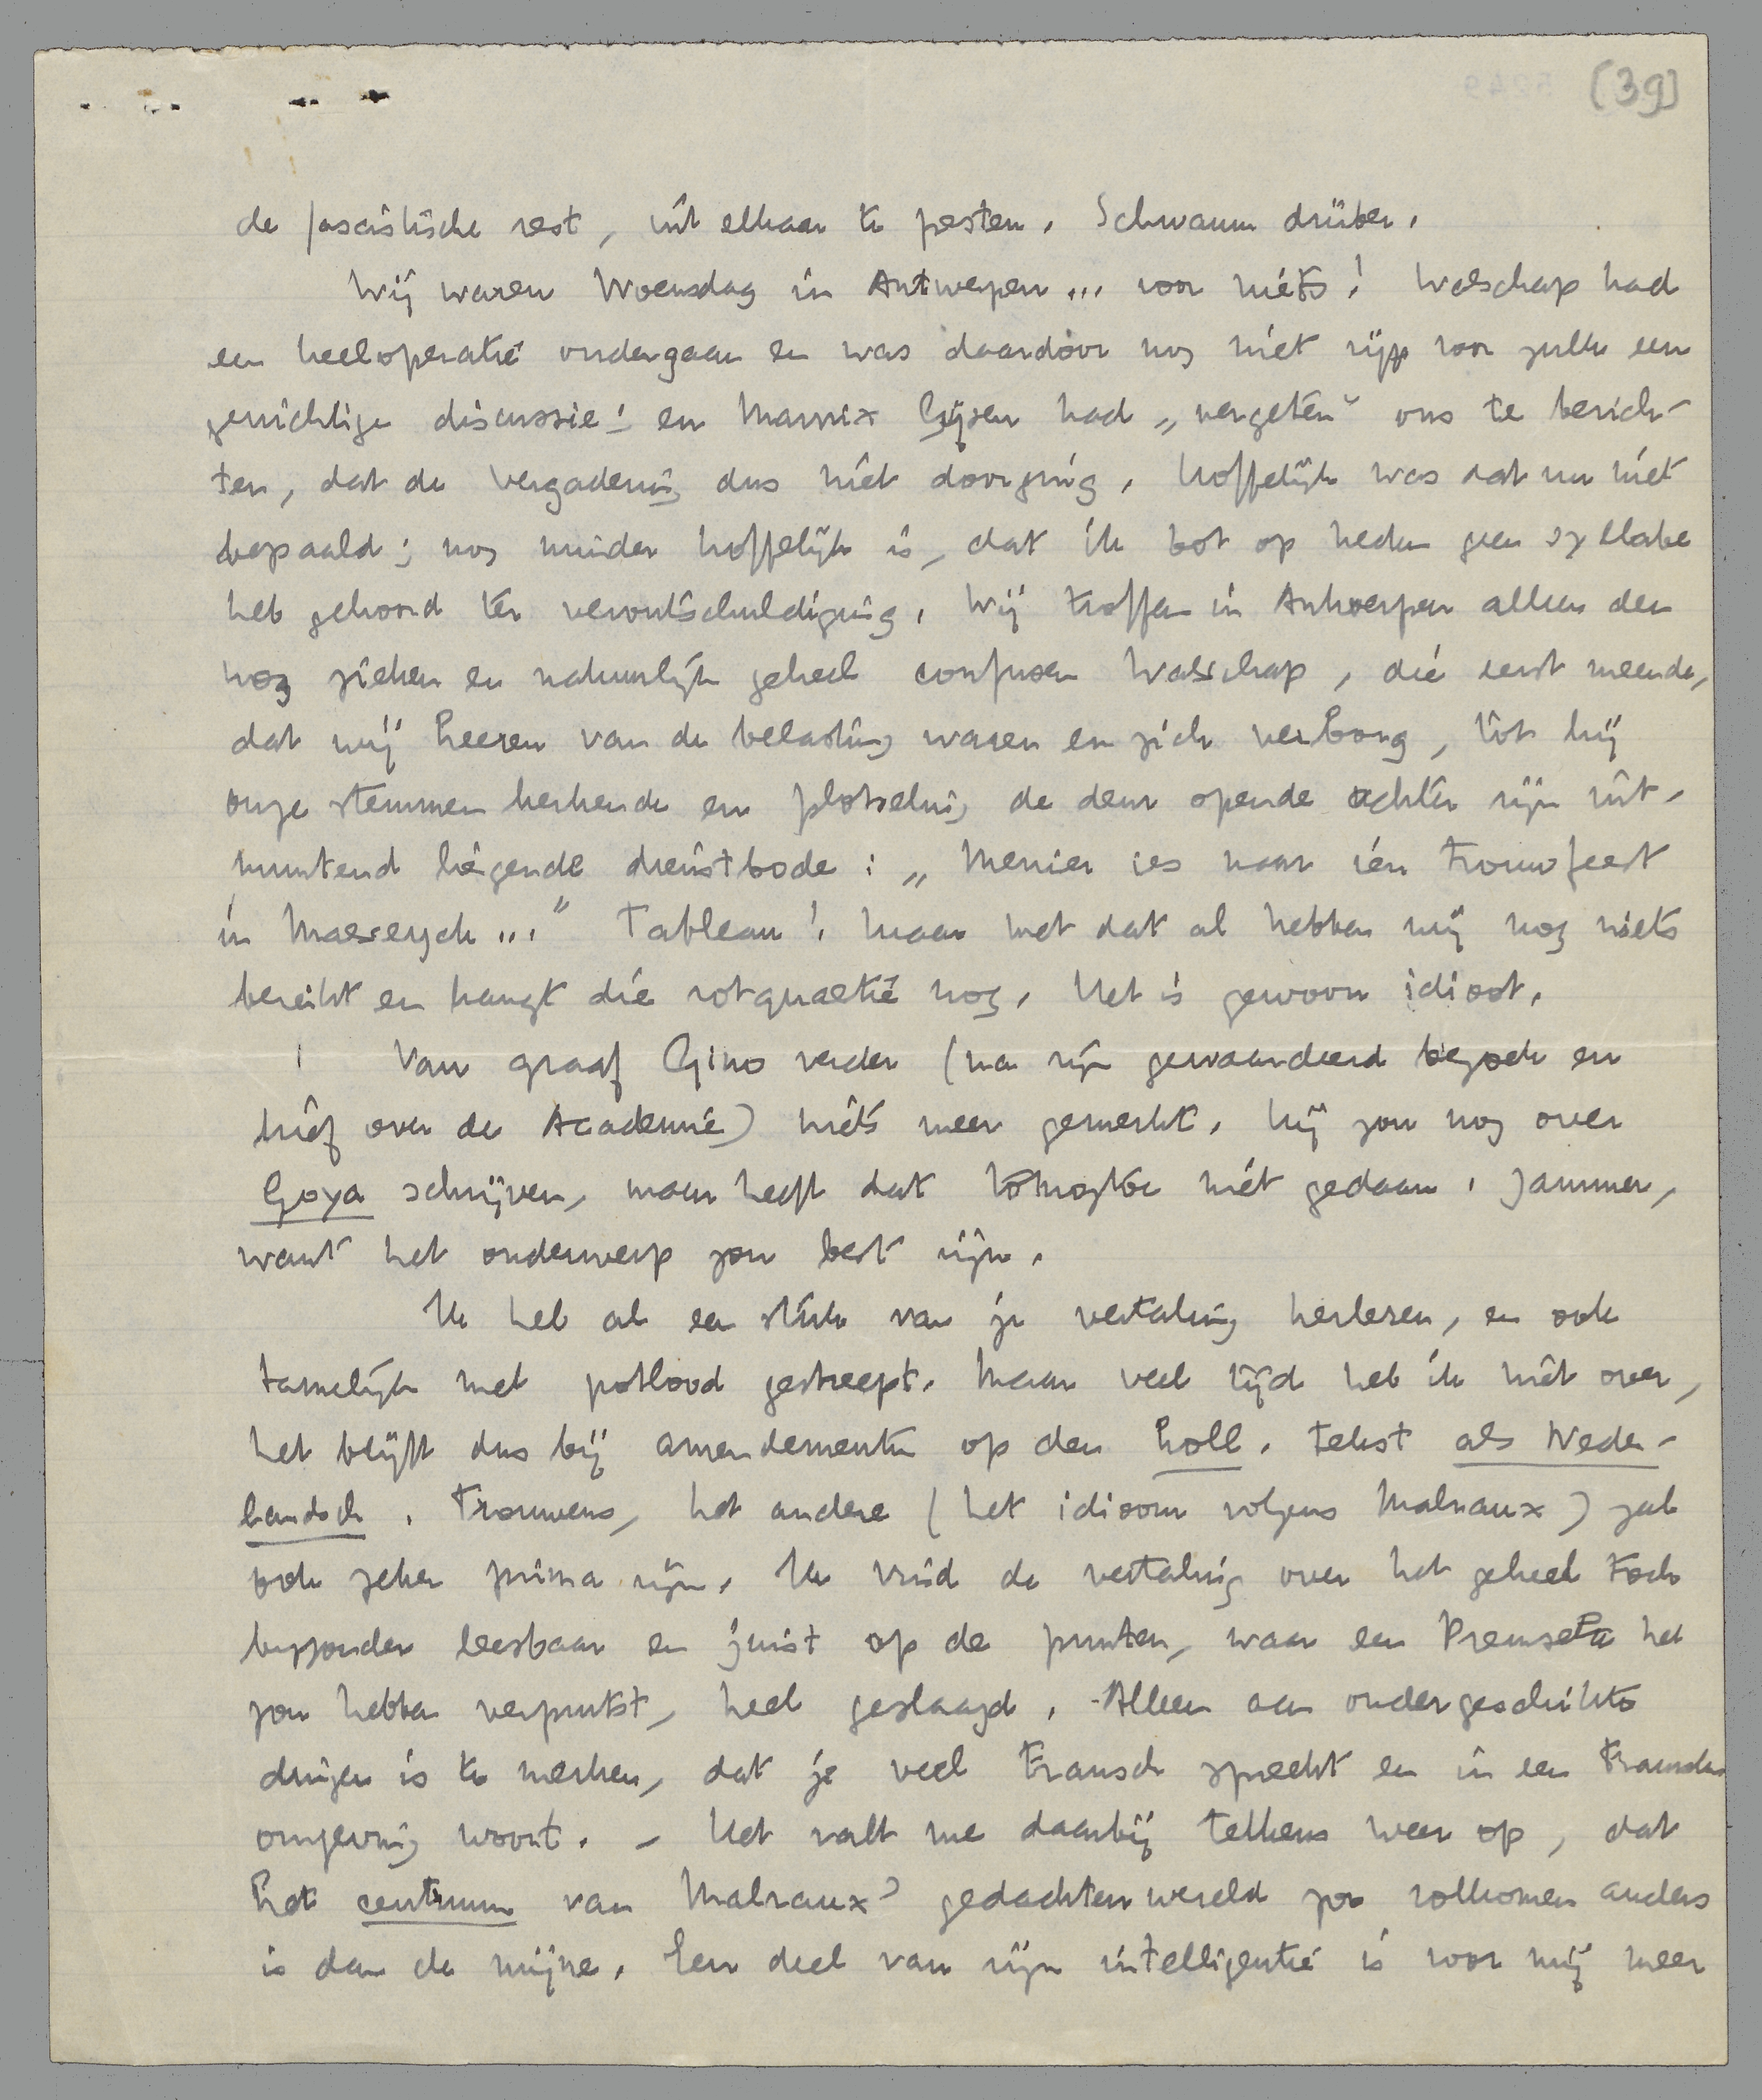 [39]
de fascistische rest, uit elkaar te pesten. Schwamm drüber.
Wij waren Woensdag in Antwerpen... voor niets! Walschap had
een keeloperatie ondergaan en was daardoor nog niet rijp voor zulk een
gewichtige discussie! en Marnix Gijsen had „vergeten" ons te berich-
ten, dat de vergadering dus niet doorging. Hoffelijk was dat nu niet
bepaald; nog minder hoffelijk is, dat ik tot op heden geen syllabe
heb gehoord ter verontschuldiging. Wij troffen in Antwerpen alleen den
nog zieken en natuurlijk geheel confusen Walschap, die eerst meende,
dat wij heeren van de belasting waren en zich verborg, tot hij
onze stemmen herkende en plotseling de deur opende achter zijn uit-
muntend liegende dienstbode: „Menier ies naar ien trouwfeest
in Maeseyck..." Tableau! Maar met dat al hebben wij nog niets
bereikt en hangt die rotquaestie nog. Het is gewoon idioot.
Van graaf Gino verder (na zijn gewaardeerd bezoek en
brief over de Academie) niets meer gemerkt. Hij zou nog over
Goya schrijven, maar heeft dat tot nog toe niet gedaan. Jammer,
want het onderwerp zou best zijn.
Ik heb al een stuk van je vertaling herlezen, en ook
tamelijk met potlood gestreept. Maar veel tijd heb ik niet over,
het blijft dus bij amendementen op den Holl. tekst als Neder-
landsch. Trouwens, het andere (het idioom volgens Malraux) zal
ook zeker prima zijn. Ik vind de vertaling over het geheel toch
bijzonder leesbaar en juist op de punten, waar een Premsela het
zou hebben verprutst, heel geslaagd. Alleen aan ondergeschikte
dingen is te merken, dat je veel Fransch spreekt en in een Fransche
omgeving woont. – Het valt me daarbij telkens weer op, dat
het centrum van Malraux' gedachtenwereld zoo volkomen anders
is dan de mijne. Een deel van zijn intelligentie is voor mij meer